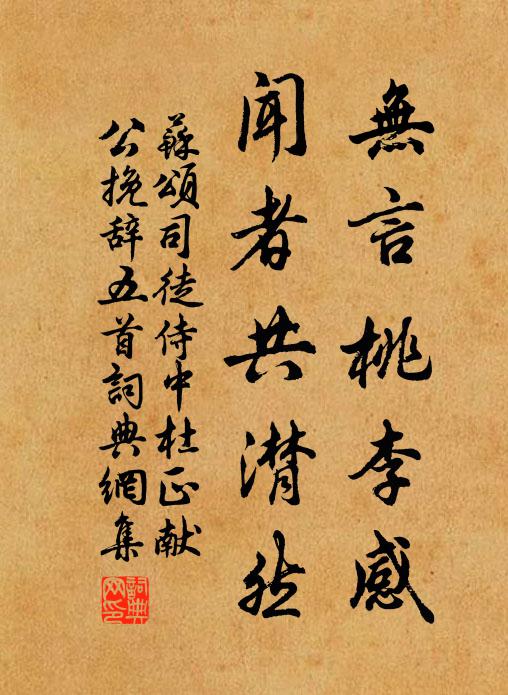 無言桃李感
聞者共潸然
蘇頌司徒侍中杜正献
公挽辞五首詞典網集
詞典网印